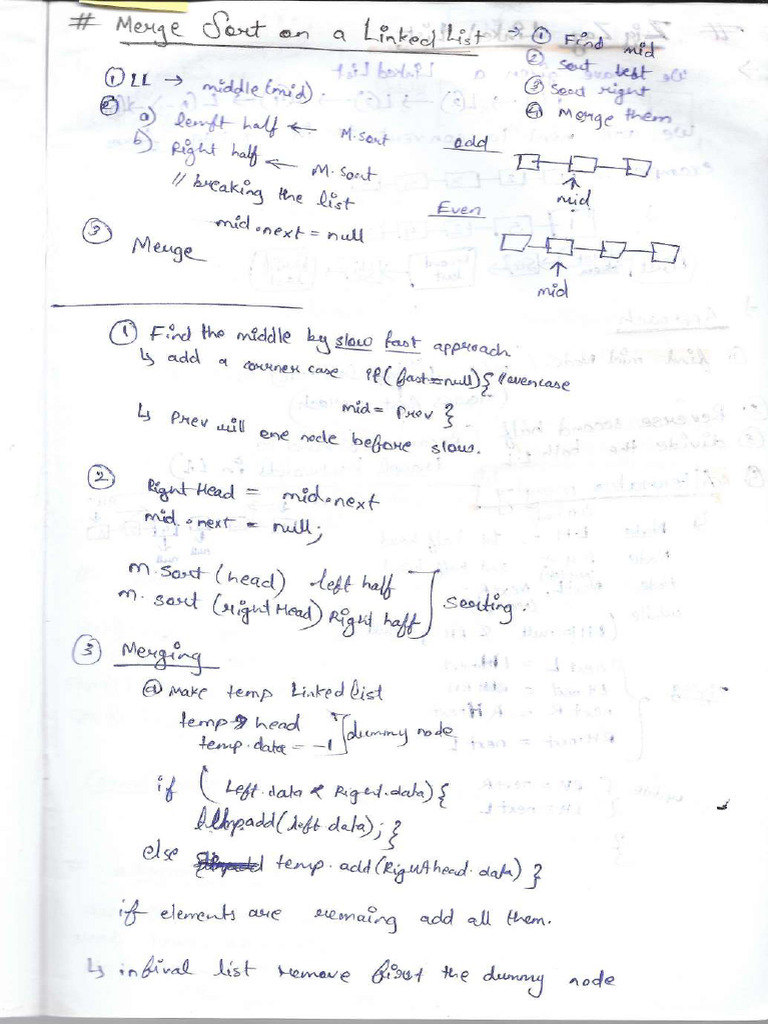 # Merge Sort on a Linked List → ① Find mid
② sort left
③ Sort right
④ Merge them
① LL → middle (mid).
②
a) lemft half ← M.sort
b) Right half ← M.sort
// breaking the list
mid.next = null
③ Merge
odd
mid
Even
mid
① Find the middle by slow fast approach
↳ add a corner case if (fast = null) { // even case
mid = Prev }
↳ Prev will one node before slow.
②
Right Head = mid.next
mid.next = null;
m.sort (head) left half
m. sort (right Head) Right haff
Sorting.
③ Merging
@ Make temp Linked list
temp → head
temp.data = -1
dummy node
if ( Left.data < Right.data) {
add (left data); }
else temp.add (RigHthead.data) }
if elements are remaing add all them.
↳ in final list remove first the dummy node